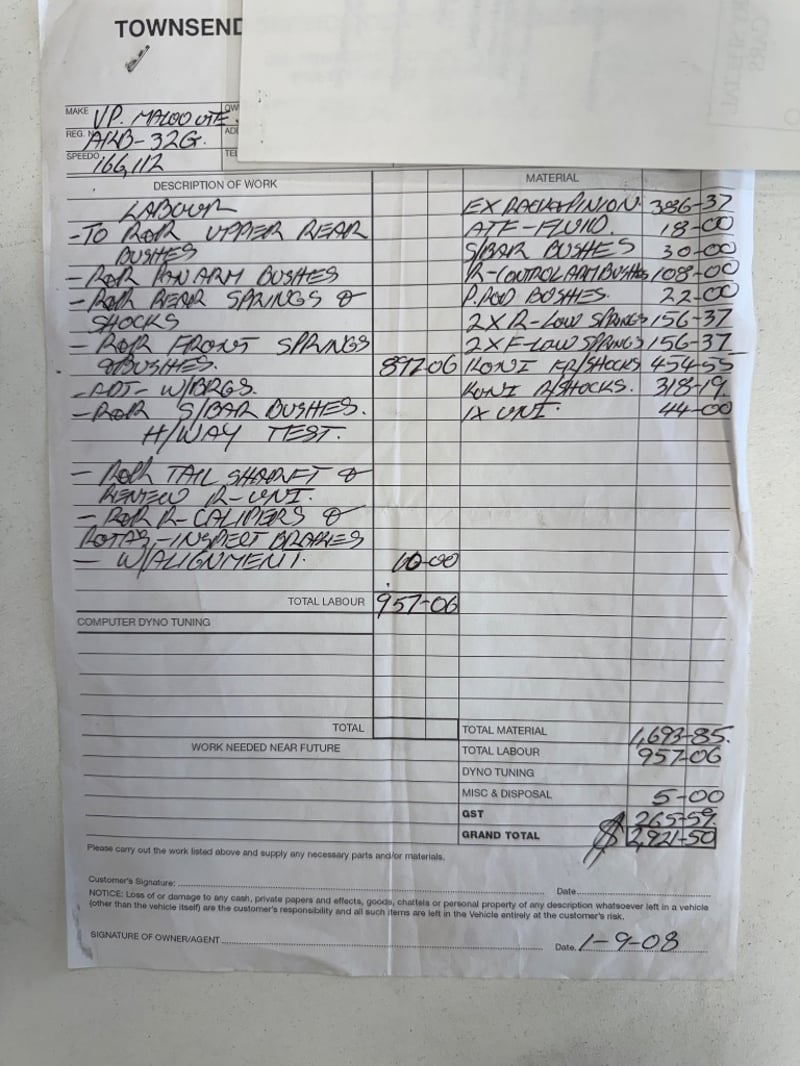 TOWNSEND
MAKE VP. MALOO UTE. OW
REG. N ARB-32G. AD
SPEEDO 166,112 TEL
DESCRIPTION OF WORK
LABOUR
-TO R&R UPPER REAR
BUSHES
- R&R PAN ARM BUSHES
- R&R REAR SPRINGS &
SHOCKS
- R&R FRONT SPRINGS
& BUSHES. 897-06
-ADJ- W/BRGS.
- R&R S/BAR BUSHES.
H/WAY TEST.
- R&R TAIL SHAFT &
RENEW R-UNI.
- R&R R-CALIPERS &
ROTAS-INSPECT BRAKES
- W/ALIGNMENT. 60-00
TOTAL LABOUR 957-06
COMPUTER DYNO TUNING
TOTAL
WORK NEEDED NEAR FUTURE
MATERIAL
EX RACK & PINION. 386-37
ATF-FLUID. 18-00
S/BAR BUSHES 30-00
R-CONTROL ARM BUSHES 108-00
P.ROD BUSHES. 22-00
2X R-LOW SPRINGS 156-37
2X F-LOW SPRINGS 156-37
KONI FR/SHOCKS 454-55
KONI R/SHOCKS. 318-19.
1X UNI. 44-00
TOTAL MATERIAL 1,693-85.
TOTAL LABOUR 957-06
DYNO TUNING
MISC & DISPOSAL 5-00
GST 265-59.
GRAND TOTAL $ 2,921-50
Please carry out the work listed above and supply any necessary parts and/or materials.
Customer's Signature: Date
NOTICE: Loss of or damage to any cash, private papers and effects, goods, chattels or personal property of any description whatsoever left in a vehicle
(other than the vehicle itself) are the customer's responsibility and all such items are left in the Vehicle entirely at the customer's risk.
SIGNATURE OF OWNER/AGENT Date. 1-9-08